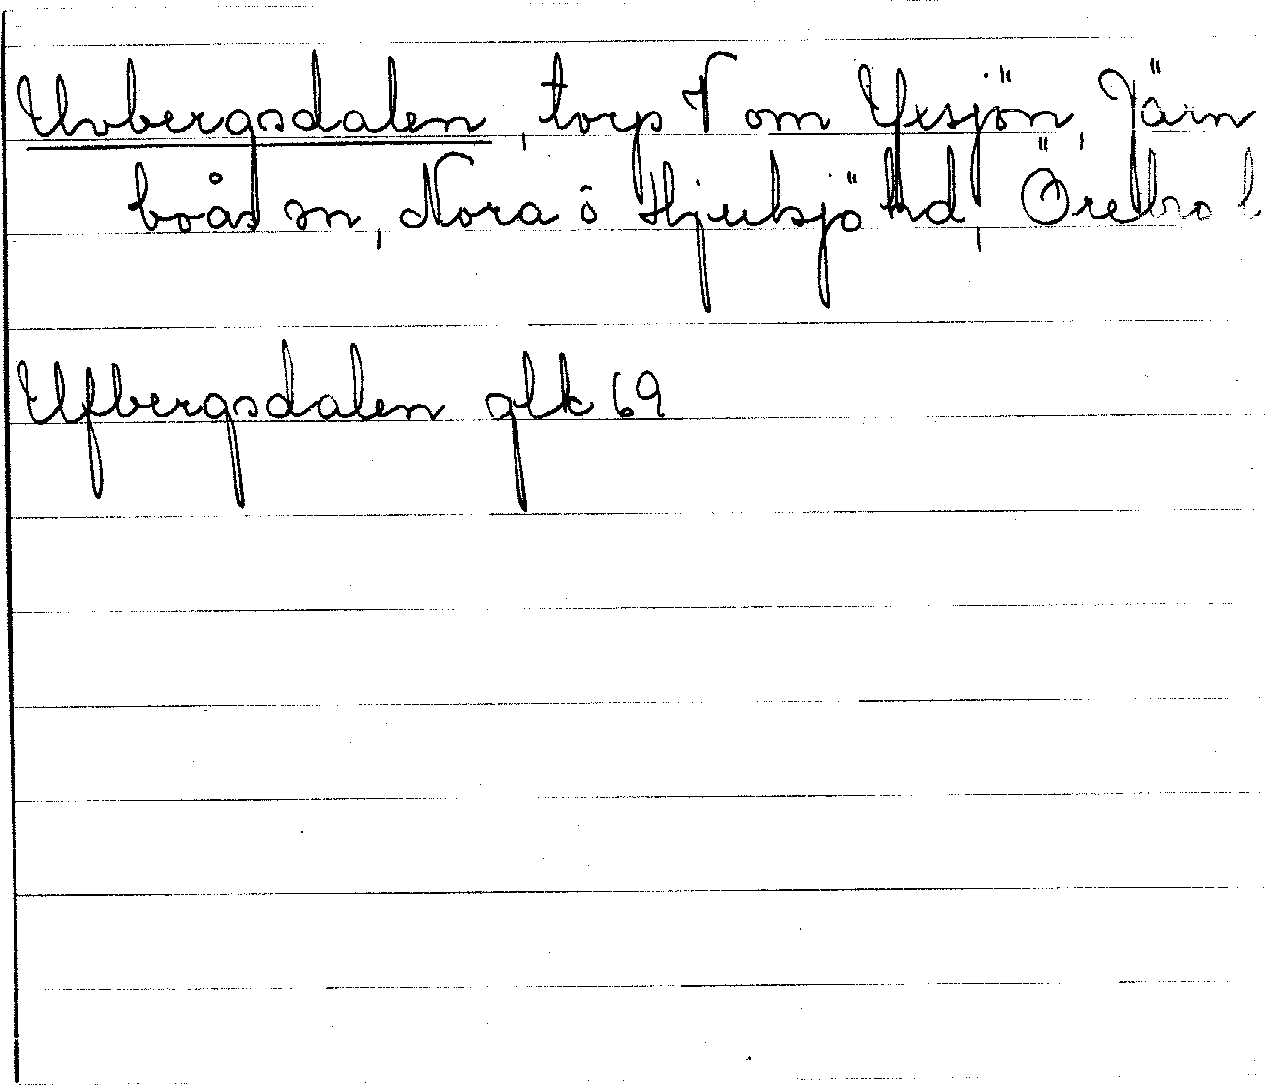 Uvbergsdalen, torp V om Yxsjön, Järn
boås sn, Nora o Hjulsjö hd, Örebro l
Ufbergsdalen glk 69